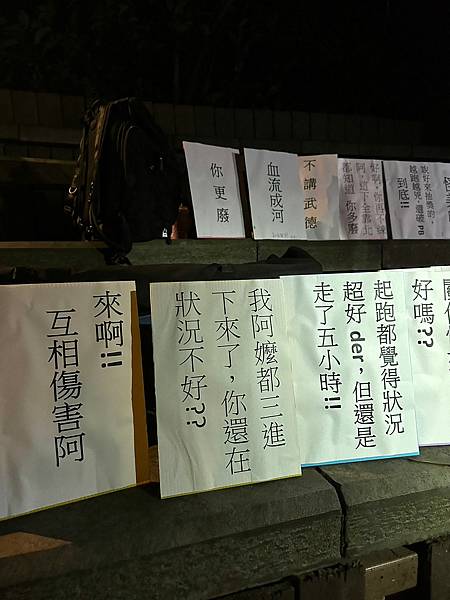 你更廢
血流成河
不講武德
阿,這下全臺北
都知道 你多廢
說好來抽獎的
越跑越兇,還破PB
到底!!
來啊!!
互相傷害阿
我阿嬤都三進
下來了,你還在
狀況不好??
起跑都覺得狀況
超好der,但還是
走了五小時!!
好嗎??